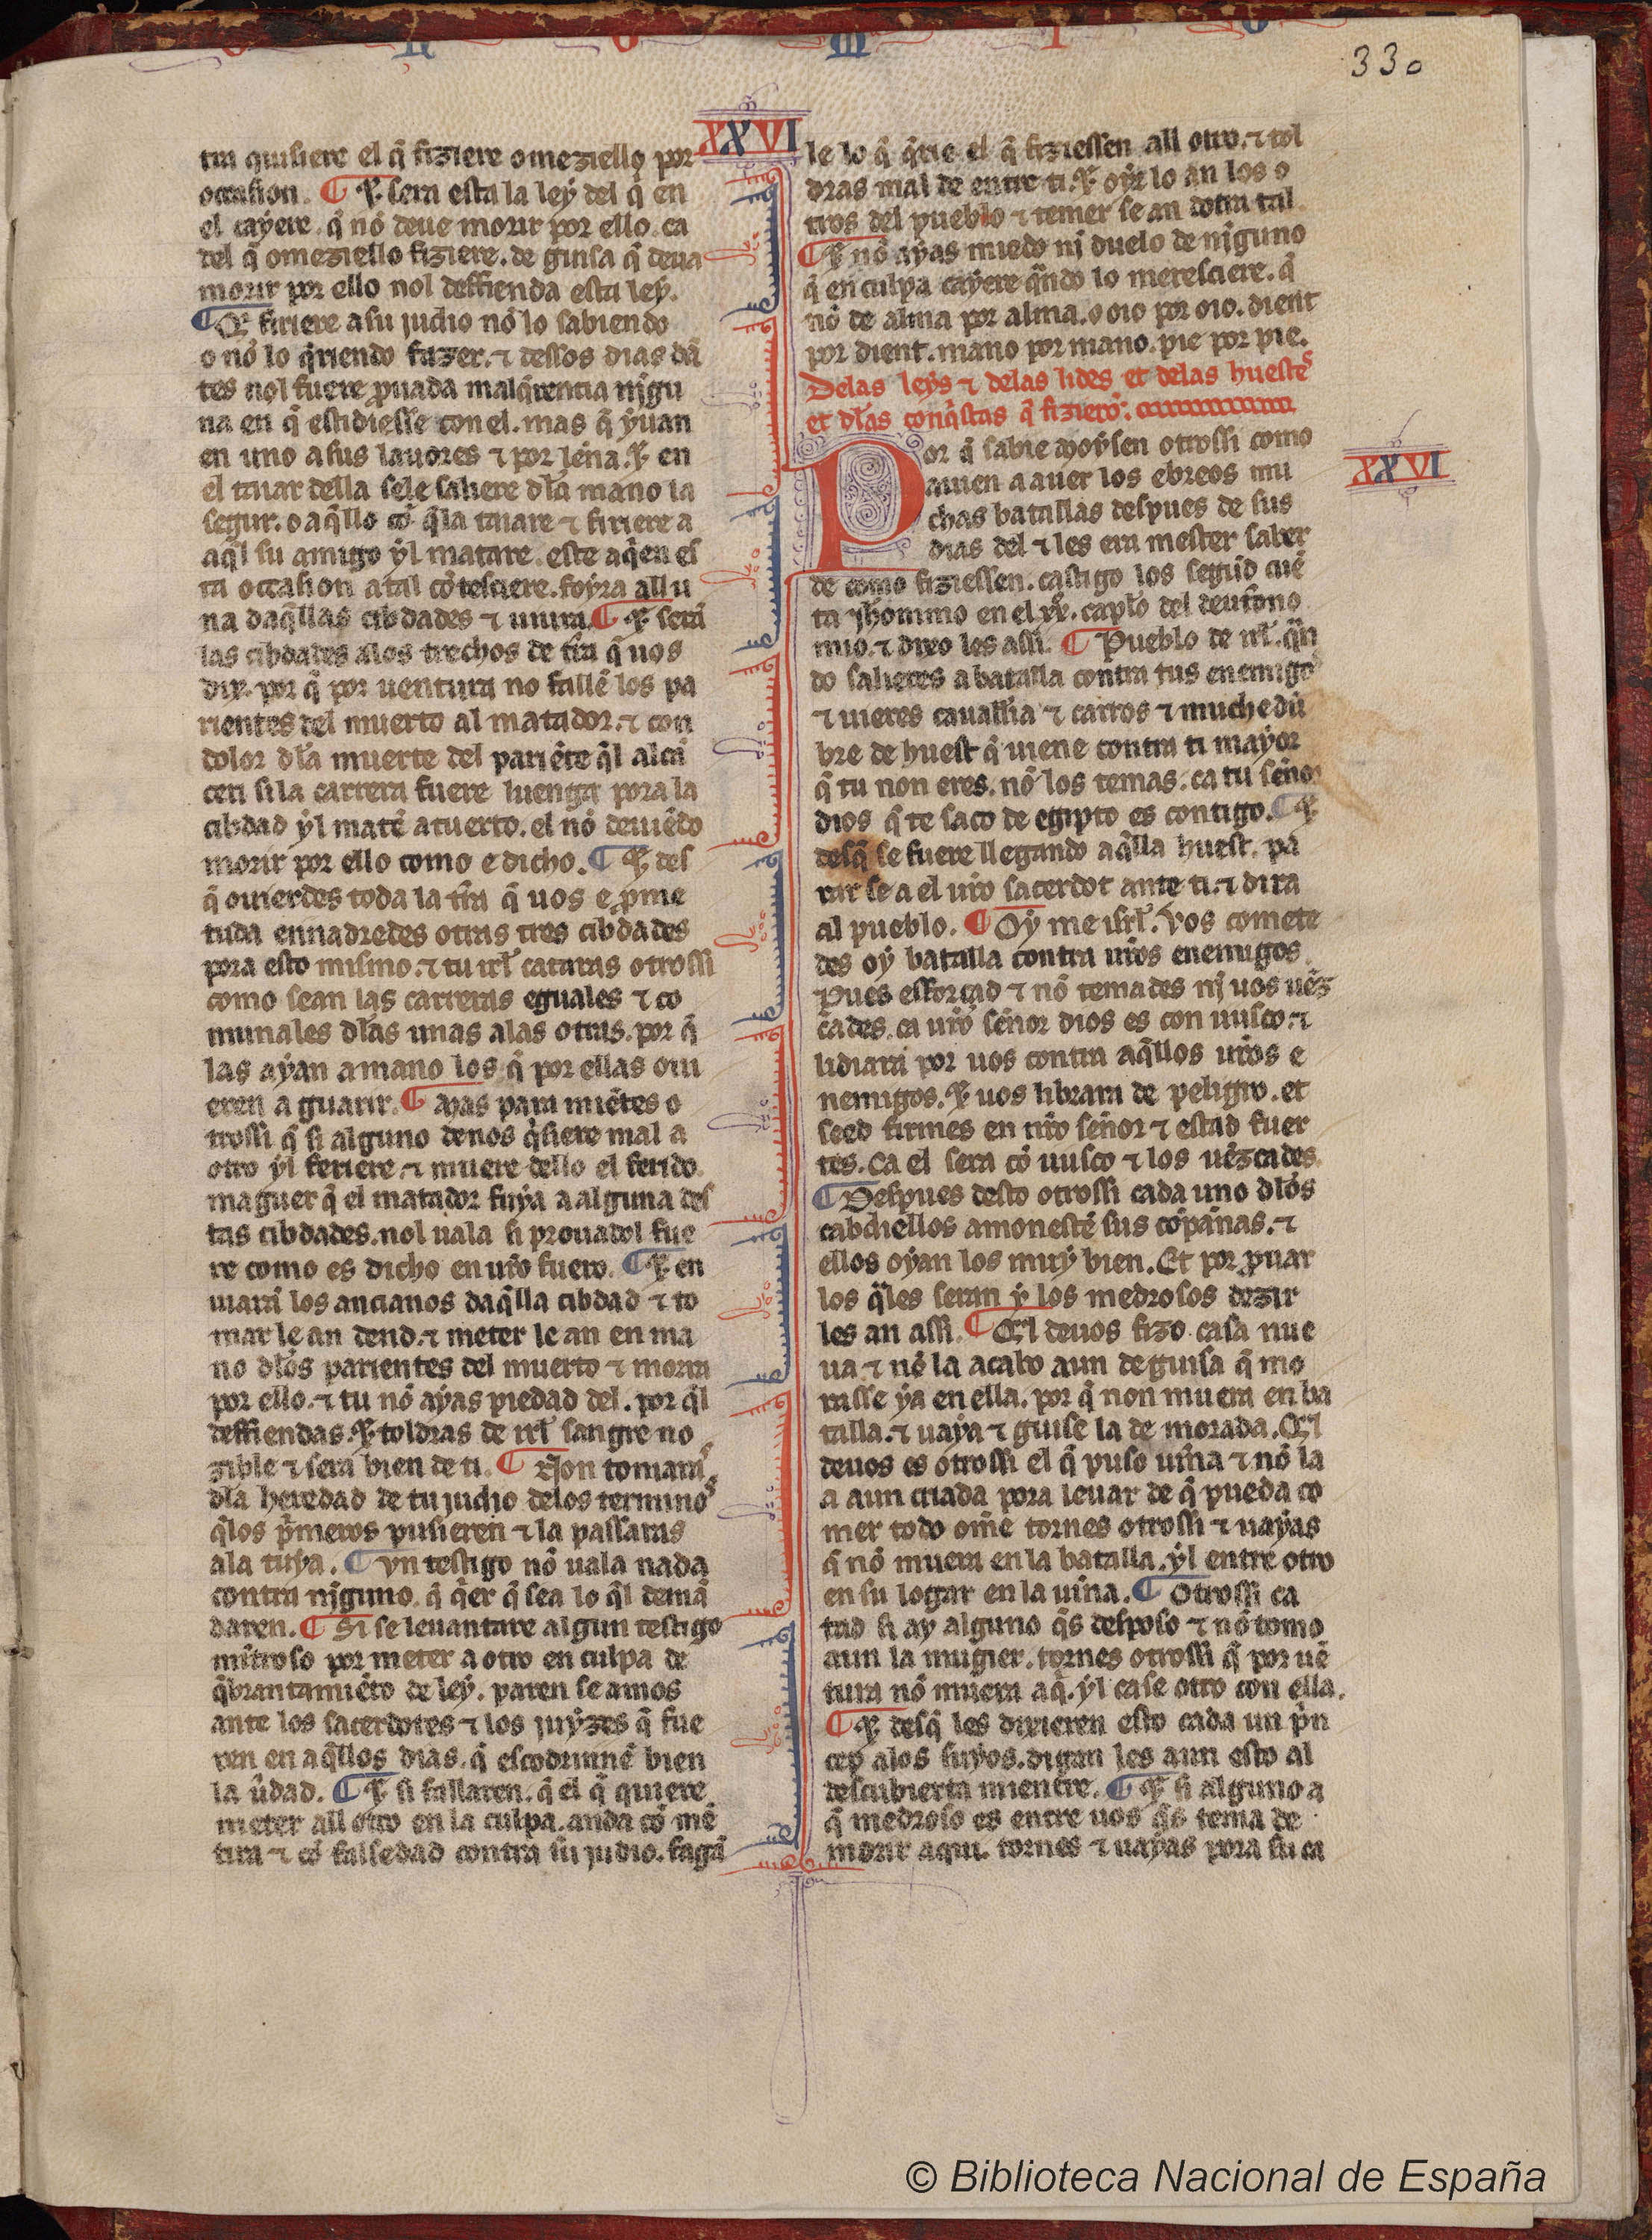 330
XXVI
tra quisiere el q̃ fiziere omeziello por
occasion. ¶ ⁊ sera esta la ley del q̃ en
el cayere. q̃ nõ deue morir por ello. ca
del q̃ omeziello fiziere. de guisa q̃ deua
morir por ello nol deffienda esta ley.
¶ Q̃ firiere a su judio nõ lo sabiendo
o nõ lo q̃riendo fazer. ⁊ dessos dias dã
tes nol fuere prouada malq̃rencia nĩgu
na en q̃ estidiesse con el. mas q̃ yuan
en uno a sus lauores ⁊ por leña. ⁊ en
el taiar della sele saliere dl̃a mano la
segur. o aq̃llo cõ q̃la taiare ⁊ firiere a
aq̃l su amigo yl matare. este aq̃en es
ta occasion atal cõtesciere. foyra all u
na daq̃llas cibdades ⁊ uiura. ¶ ⁊ serã
las cibdades alos trechos de tr̃ra q̃ uos
dix. por q̃ por uentura no fallẽ los pa
rientes del muerto al matador. ⁊ con
dolor dl̃a muerte del pariẽte q̃l alcã
cen si la carrera fuere luenga pora la
cibdad yl matẽ a tuerto. el nõ deuiẽdo
morir por ello como e dicho. ¶ ⁊ des
q̃ ouierdes toda la tr̃ra q̃ uos e p̃me
tuda ennadredes otras tres cibdades
pora esto mismo. ⁊ tu irl̃ cataras otrossi
como sean las carreras eguales ⁊ co
munales dl̃as unas alas otras. por q̃
las ayan a mano los q̃ por ellas oui
eren a guarir. ¶ Mas para miẽtes o
trossi q̃ si alguno deuos q̃siere mal a
otro yl feriere. ⁊ muere dello el ferido.
maguer q̃ el matador fuya a alguna des
tas cibdades. nol uala si prouadol fue
re como es dicho en ur̃o fuero. ¶ ⁊ en
uiarã los ancianos daq̃lla cibdad ⁊ to
mar le an dend. ⁊ meter le an en ma
no dl̃os parientes del muerto ⁊ morra
por ello. ⁊ tu nõ ayas piedad del. por q̃l
deffiendas. ⁊ toldras de irl̃ sangre no
zible ⁊ sera bien de ti. ¶ Non tomaras
dl̃a heredad de tu judio delos terminos
q̃los p̃meros pusieren ⁊ la passaras
ala tuya. ¶ Vn testigo nõ uala nada
contra nĩguno. q̃ q̃er q̃ sea lo q̃l demã
daren. ¶ Si se leuantare algun testigo
mĩtroso por meter a otro en culpa de
q̃brantamiẽto de ley. paren se amos
ante los sacerdotes ⁊ los juyzes q̃ fue
ren en aq̃llos dias. q̃ escodrinnẽ bien
la ũdad. ¶ ⁊ si fallaren. q̃ el q̃ quiere
meter all otro en la culpa. anda cõ mẽ
tira ⁊ cõ falsedad contra su judio. fagã
le lo q̃ q̃rie el q̃ fiziessen all otro. ⁊ tol
dras mal de entre ti. ⁊ oyr lo an los o
tros del pueblo ⁊ temer se an dotra tal
¶ ⁊ nõ ayas miedo nj duelo de nĩguno
q̃ en culpa cayere q̃ndo lo meresciere. q̃
nõ de alma por alma. o oio por oio. dient
por dient. mano por mano. pie por pie.
Delas leys ⁊ delas lides et delas huestes
et dl̃as conq̃stas q̃ fizierõ.
XXVI
Por q̃ sabie Moysen otrossi como
auien a auer los ebreos mu
chas batallas despues de sus
dias del ⁊ les era mester saber
de como fiziessen. castigo los segũd cuẽ
ta jh̃eronimo en el xx. capl̃o del deutono
mio. ⁊ dixo les assi. ¶ Pueblo de irl̃. q̃n
do salieres a batalla contra tus enemigos
⁊ uieres cauall̃ia ⁊ carros ⁊ muchedũ
bre de huest q̃ uiene contra ti mayor
q̃ tu non eres. nõ los temas. ca tu señor
dios q̃ te saco de egipto es contigo. ¶ ⁊
desq̃ se fuere llegando aq̃lla huest. pa
rar se a el ur̃o sacerdot ante ti. ⁊ dira
al pueblo. ¶ Oy me isrl̃. Vos comete
des oy batalla contra ur̃os enemigos.
Pues esforçad ⁊ nõ temades nj uos uẽz
cades. ca ur̃o señor dios es con uusco. ⁊
lidiara por uos contra aq̃llos ur̃os e
nemigos. ⁊ uos librara de peligro. et
seed firmes en nr̃o señor ⁊ estad fuer
tes. Ca el sera cõ uusco ⁊ los uẽzcades.
¶ Despues desto otrossi cada uno dl̃os
cabdiellos amonestẽ sus cõpãnas. ⁊
ellos oyan los muy bien. Et por prouar
los q̃les seran y los medrosos dezir
les an assi. ¶ Q̃l deuos fizo casa nue
ua ⁊ nõ la acabo aun de guisa q̃ mo
rasse ya en ella. por q̃ non muera en ba
talla. ⁊ uaya ⁊ guise la de morada. Q̃l
deuos es otrossi el q̃ puso uiña ⁊ nõ la
a aun criada pora leuar de q̃ pueda co
mer todo om̃e tornes otrossi ⁊ uayas
q̃ nõ muera en la batalla. yl entre otro
en su logar en la uiña. ¶ Otrossi ca
tad si ay alguno q̃s desposo ⁊ nõ tomo
aun la mugier. tornes otrossi q̃ por uẽ
tura nõ muera aq̃. yl case otro con ella.
¶ ⁊ desq̃ les dixieren esto cada un p̃n
cep alos suyos. digan les aun esto al
descubierta mientre. ¶ ⁊ si alguno a
q̃ medroso es entre uos q̃s tema de
morir aqui. tornes ⁊ uayas pora su ca
© Biblioteca Nacional de España